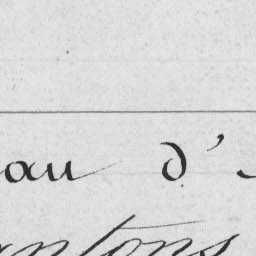 au d'
ntons